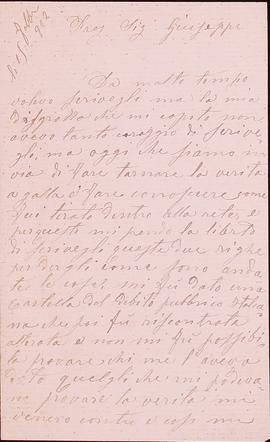 Preg Sig Giuseppe
Da molto tempo
volevo scrivegli ma la mia
disgrazia che mi capitò non
avevo tanto coraggio di scrive
gli, ma oggi che siamo in
via di fare tornare la verità
a galla e fare conoscere come
fui tirato dentro alla rete, e
per questo mi prendo la libertà
di scrivegli queste due righe
per dirgli come sono anda
te le cose, mi fu dato una
Cartella del debito pubblico Italia
na che poi fù riscontrata
alterata e non mi fu possibi
la provare chi me l'aveva
dato quelgli che mi podeva
no provare la verità mi
venero contro e così mi